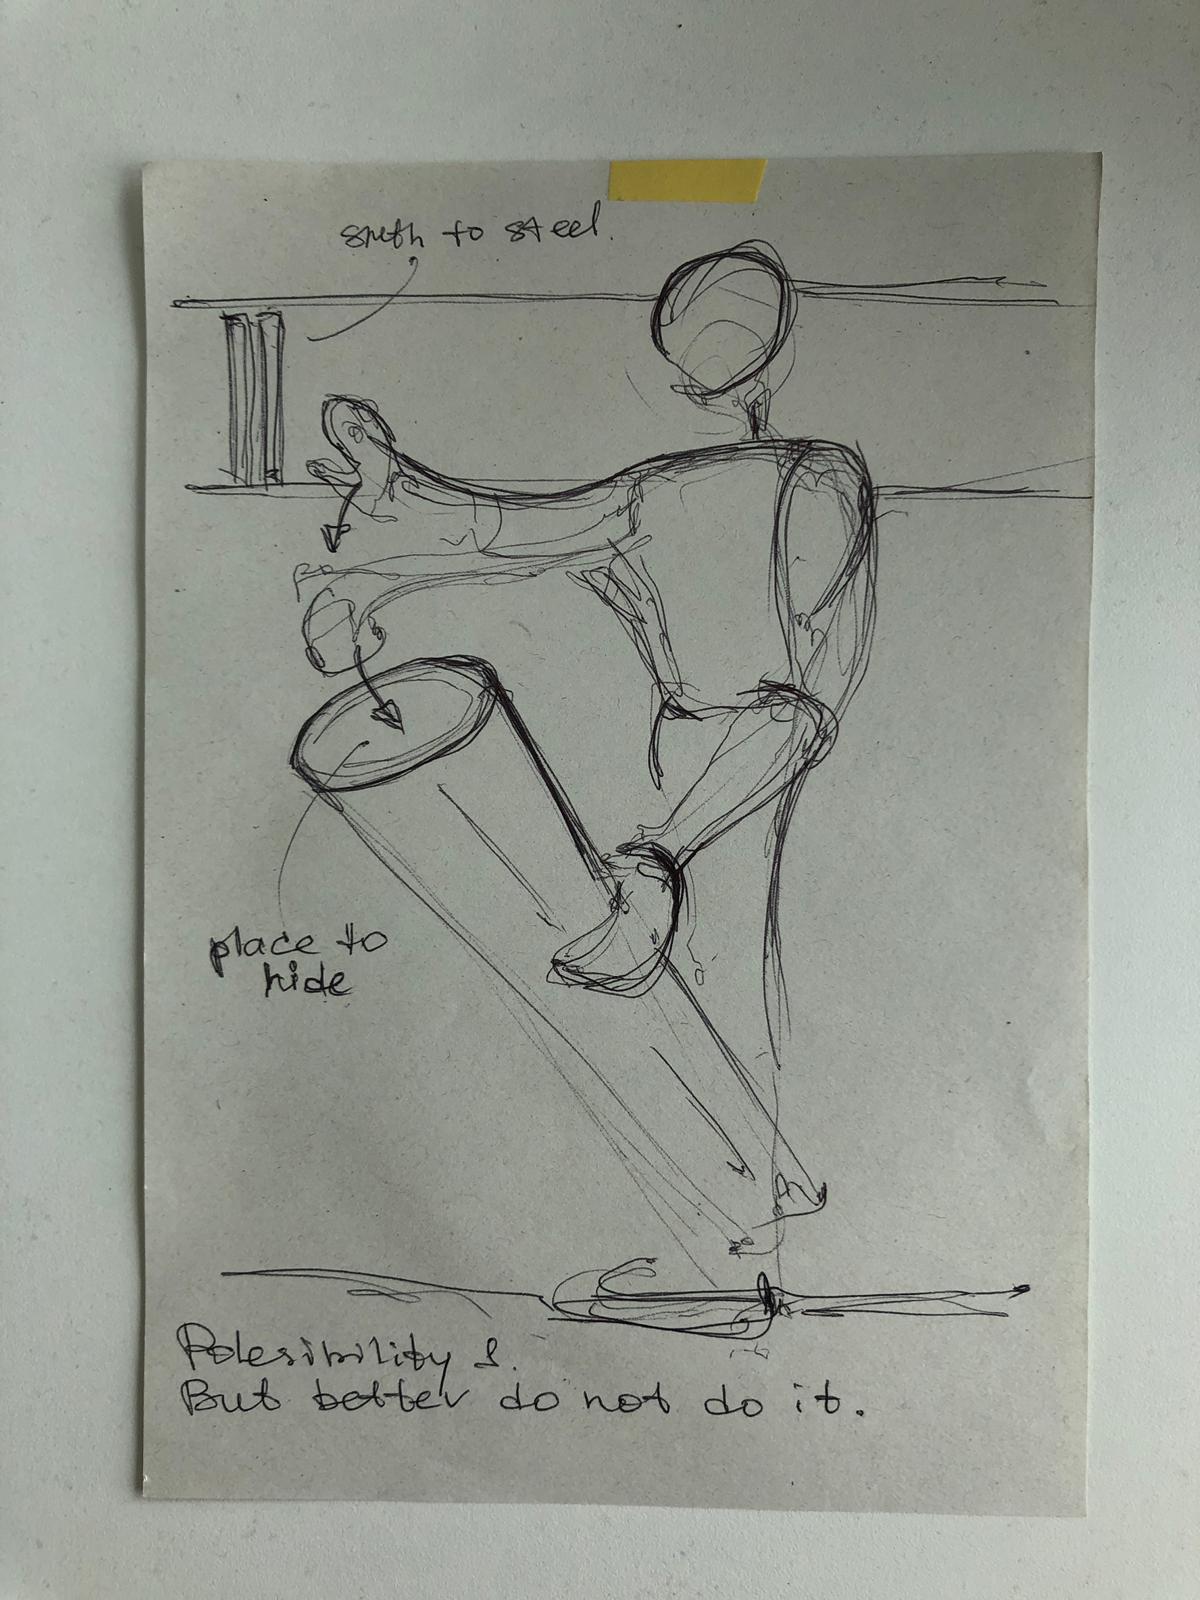 smth to steel.
place to
hide
Polesibility 1.
But better do not do it.